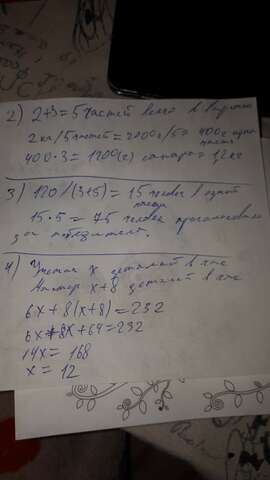 2) 2+3=5 частей всего в варенье
2кг/5 частей=2000г/5=400г одна
часть
400·3=1200(г) сахара=1,2кг
3) 120/(3+5)=15 человек в одной
части
15·5=75 человек проголосовало
за победителя.
4) Ученик x деталей в час
Мастер x+8 деталей в час
6x+8(x+8)=232
6x+8x+64=232
14x=168
x=12